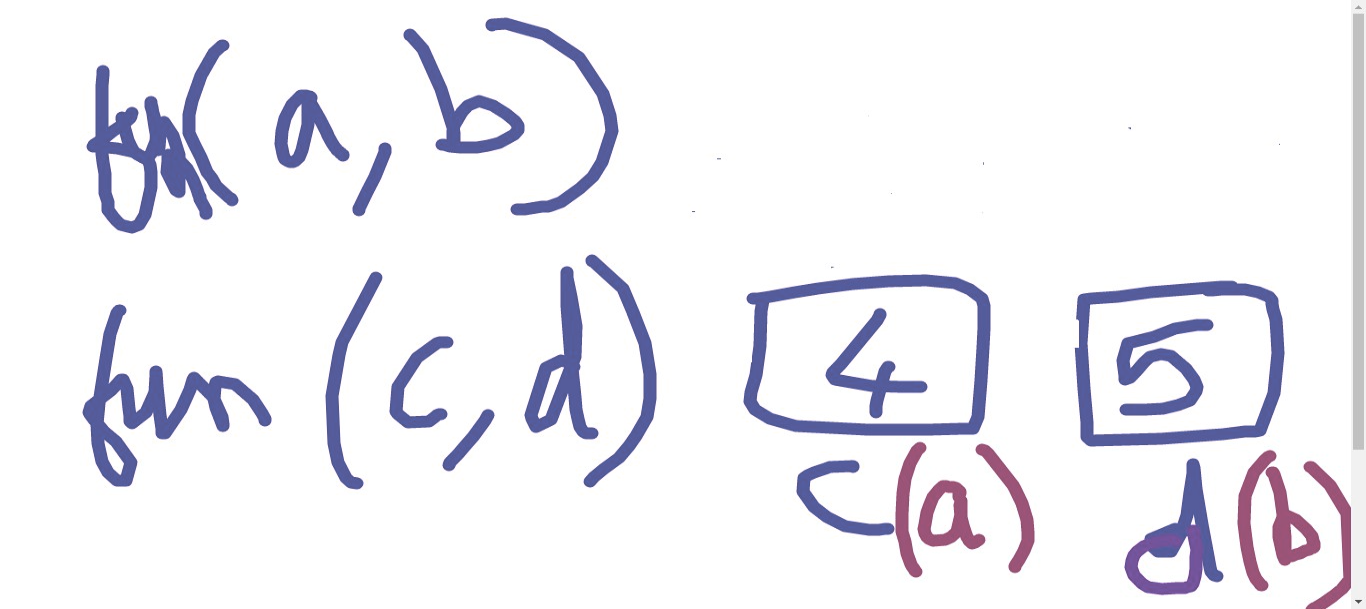 fun(a,b)
fun(c,d) 4 5
c(a) d(b)